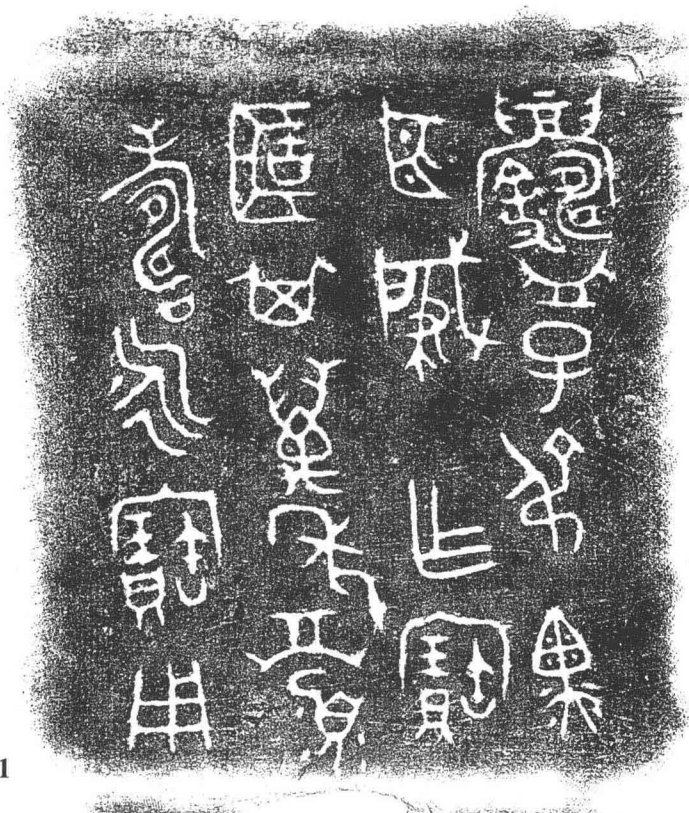 鑄子叔黑
𦣞肇乍寶
簠其萬年眉
壽永寶用
1